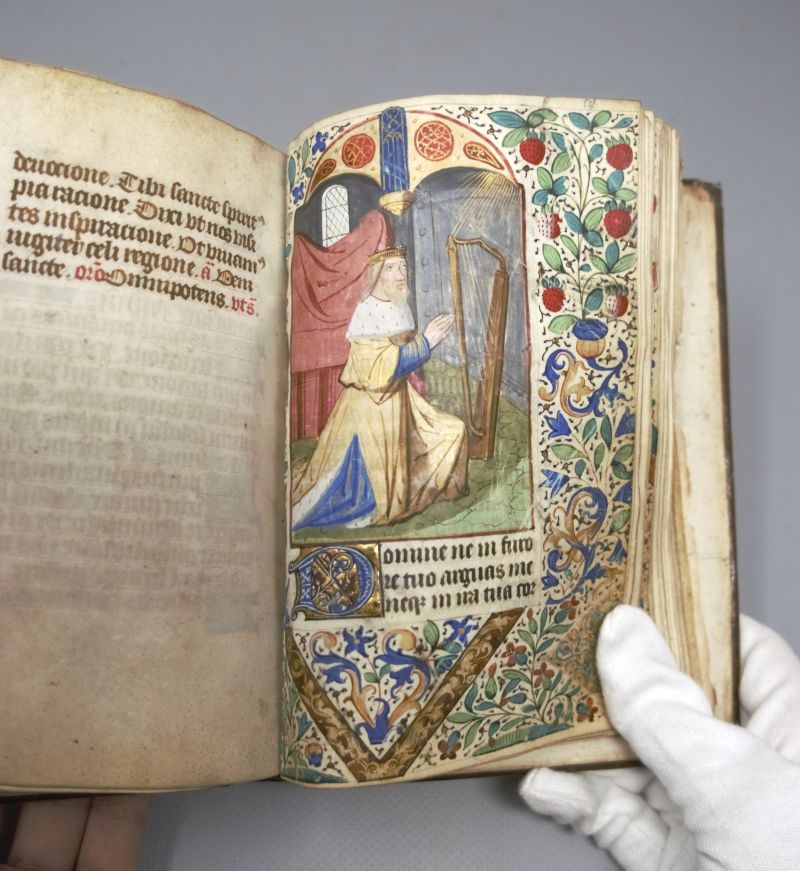 deuocione. Tibi sancte spirit⁹
pia racione. Dixi vt nos visi
tes inspiracione. Et viuam⁹
iugiter celi regione. a᷑ Veni
sancte. orō Omnipotens. vts̄.
Domine ne in furo
re tuo arguas me
neqꝫ in ira tua cor